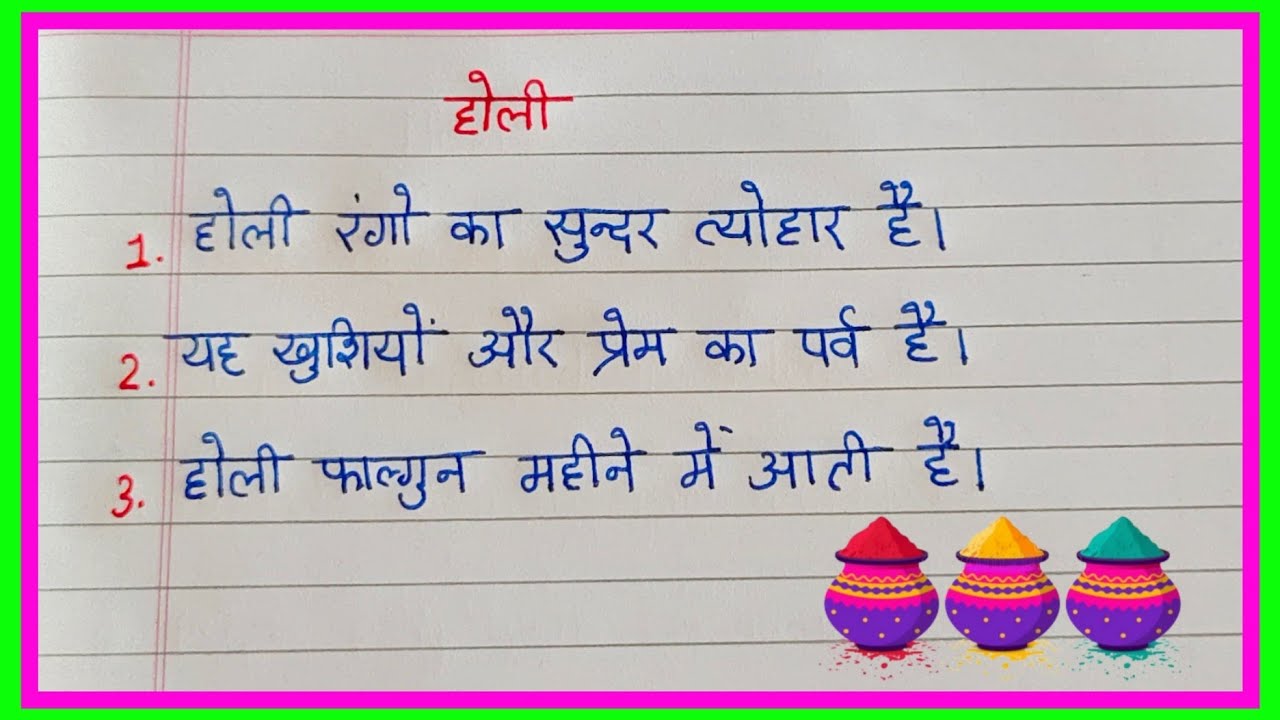 होली
1. होली रंगो का सुन्दर त्योहार है।
2. यह खुशियों और प्रेम का पर्व है।
3. होली फाल्गुन महीने में आती है।